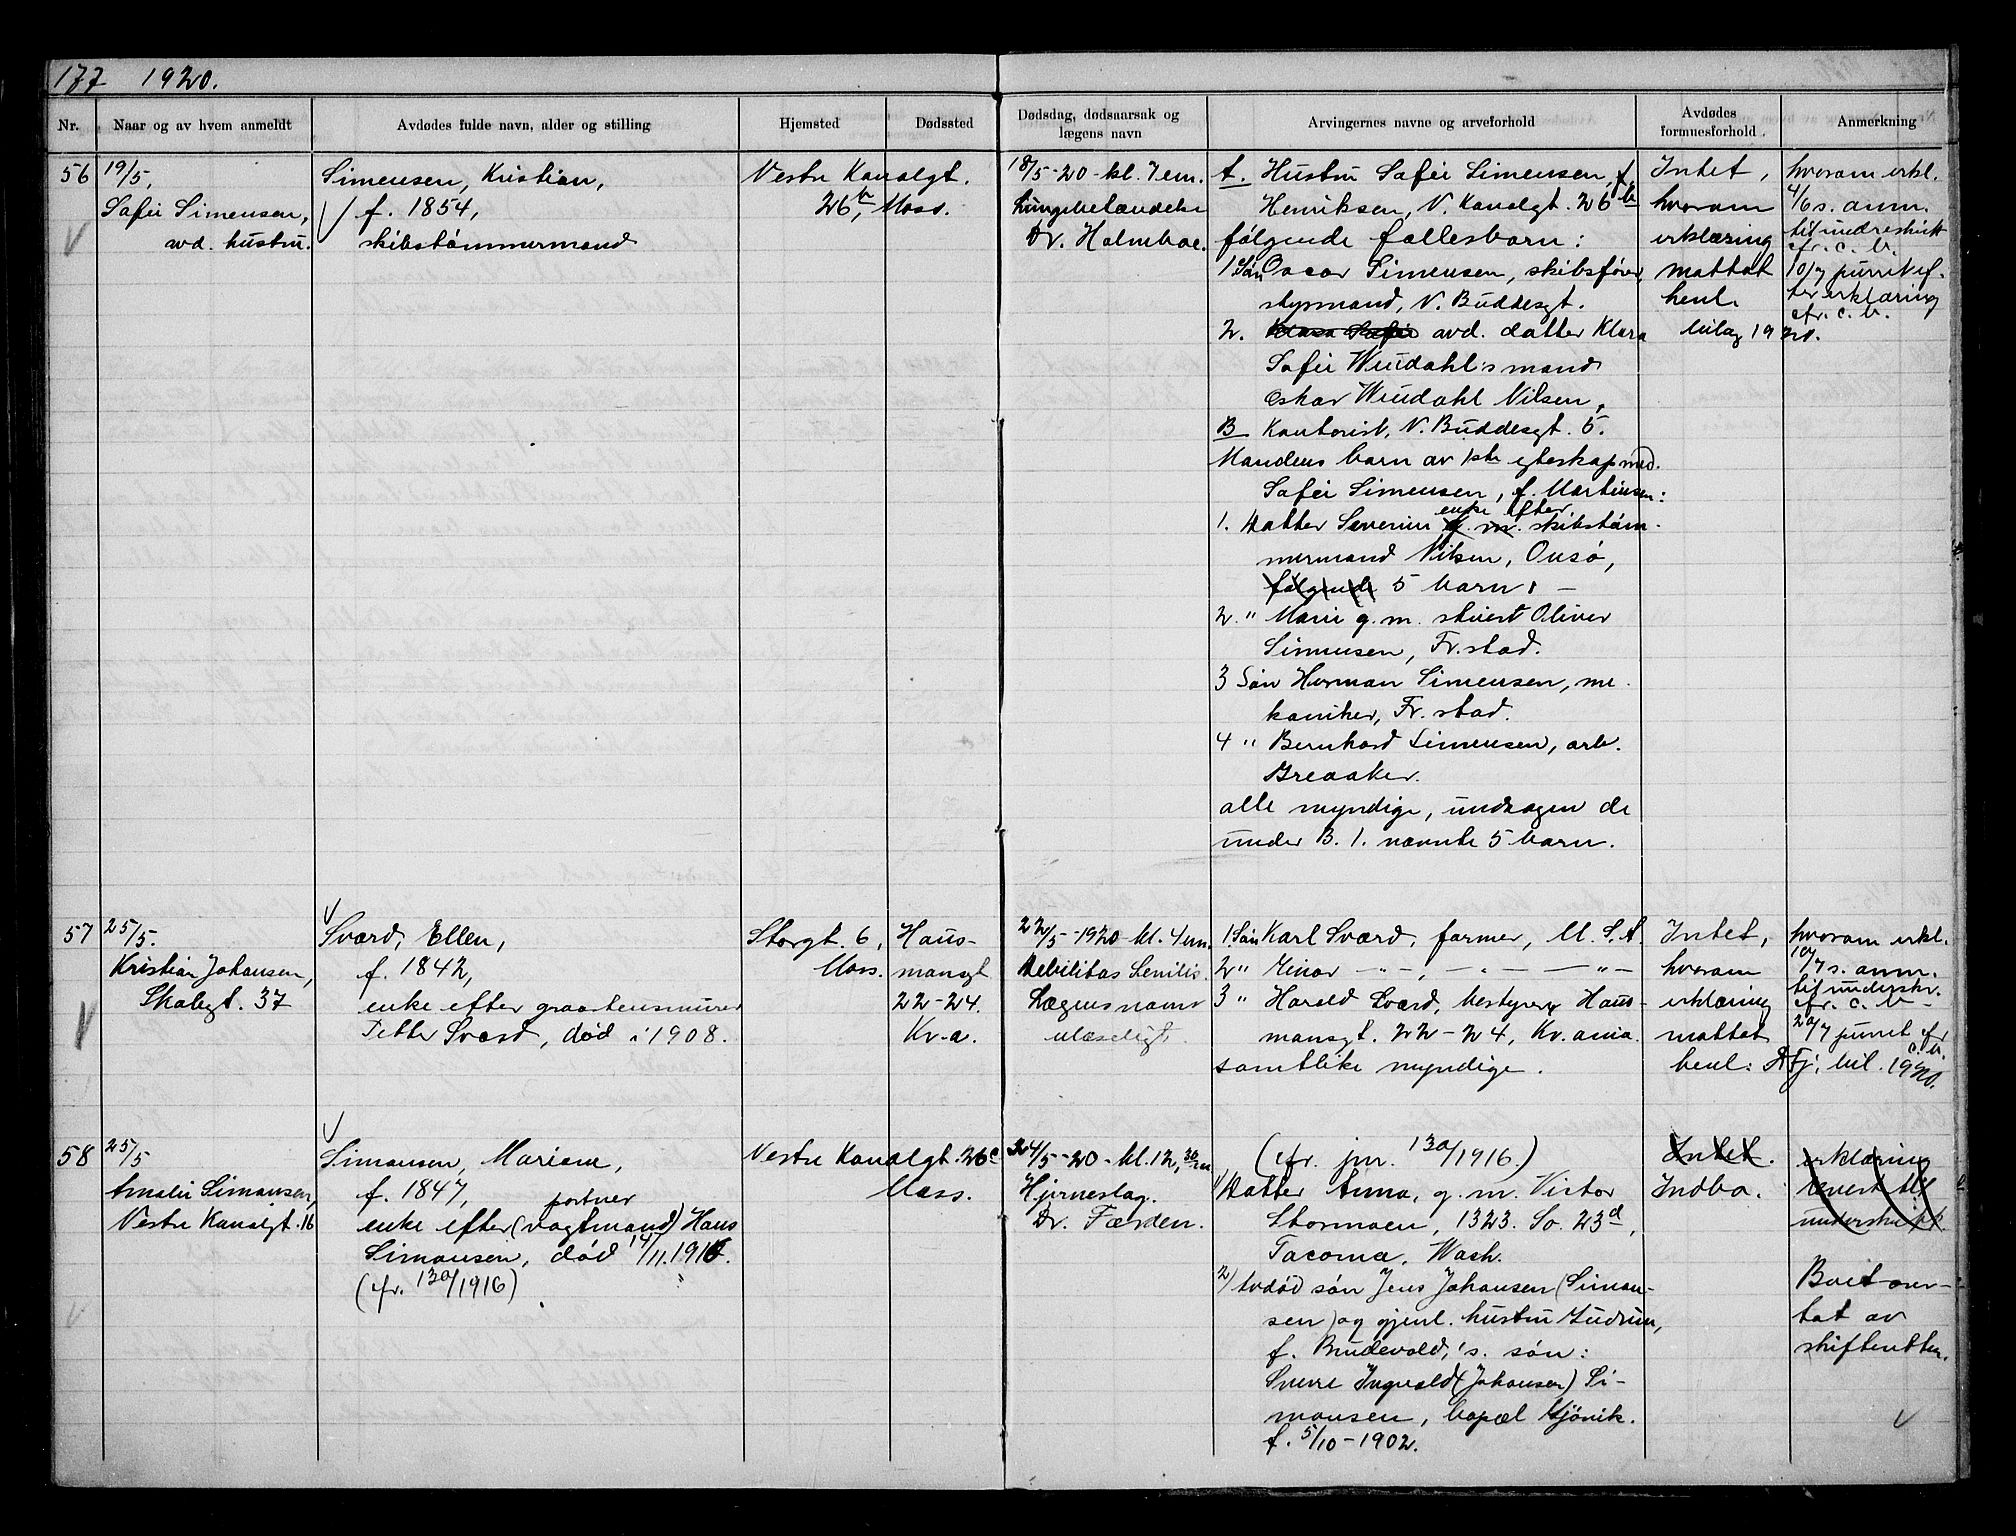 177 1920.
Nr.
Naar og av hvem anmeldt
Avdødes fulde navn, alder og stilling
Hjemsted
Dødssted
Dødsdag, dødsaarsak og
lægens navn
Arvingernes navne og arveforhold
Avdødes
formuesforhold.
Anmerkning
56
19/5,
Sofie Simensen,
avd. hustru.
Simensen, Kristian,
f. 1854,
skibstømmermand
Vestre Kanalgt.
26b, Moss.
18/5-20-kl. 7 em.
Lungebetændelse
Dr. Holmboe.
A. Hustru Sofie Simensen, f.
Henriksen, V. Kanalgt. 26b
følgende fællesbarn:
1 Søn Oscar Simensen, skibsfører,
styrmand, N. Buddesgt.
2. Klara Sofie avd. datter Klara
Sofie Weudahl's mand
Oskar Weudahl Nilsen,
B Kontorist, N. Buddesgt. 5.
Mandens barn av 1ste egteskap med.
Sofie Simensen, f. Martinsen:
enke efter
1. Datter Severine g. m. skibstøm-
mermand Nilsen, Onsø,
følgende 5 barn: -
2. " Marie g. m. stuert Oliver
Simensen, Fr.stad.
3 Søn Herman Simensen, me-
kaniker, Fr.stad.
4 " Bernhard Simensen, arb.
Greaaker.
alle myndige, undtagen de
under B. 1. nævnte 5 barn.
Intet,
hvorom
erklæring
mottat
henl.
bilag 1920.
hvorom erkl.
4/6 s. anm.
til underskrift
cfr. c. b.
10/7 purret ef-
ter erklæring
cfr. c. b.
57
25/5.
Kristian Johansen,
Skolegt. 37
Sværd, Ellen,
f. 1842,
enke efter graastensmurer
Petter Sværd, død i 1908.
Storgt. 6,
Moss.
Haus-
mansgt
22-24.
Kr.-a.
22/5-1920 kl. 4 em.
Debilitas Senilis.
Lægens navn
ulæseligt.
1. Søn Karl Sværd, farmer, U. S. A.
2 " Einar -"-, -"- -"-
3 " Harald Sværd, bestyrer, Haus-
mansgt. 22-24, Kr.ania.
samtlike myndige.
Intet,
hvorom
erklæring
mottat
henl:
hvorom erkl.
10/7 s. anm.
til underskr.
cfr. c. b -
20/7 purret cfr
c. b.
Fj. bil. 1920.
58
25/5
Amalie Simonsen,
Vestre Kanalgt. 16
Simonsen, Mariane,
f. 1847,
portner
enke efter (vagtmand) Hans
Simonsen, død 14/11.1916.
(cfr. 130/1916)
Vestre Kanalgt. 26c
Moss.
24/5-20-kl. 12,30 m
Hjerneslag.
Dr. Færden.
(cfr. jnr. 130/1916.)
1) Datter Anna, g. m. Victor
Stormoen, 1323. So. 23d,
Tacoma, Wash.
2) Avdød søn Jens Johansen (Simon-
sen) og gjenl. hustru Gudrun,
f. Brudevold,'s søn:
Sverre Ingvald (Johansen) Si-
monsen, bopæl Gjövik.
f. 5/10-1902.
Intet.
Indbo.
erklæring
levert til
underskrift.
Boet over-
tat av
skifteretten.